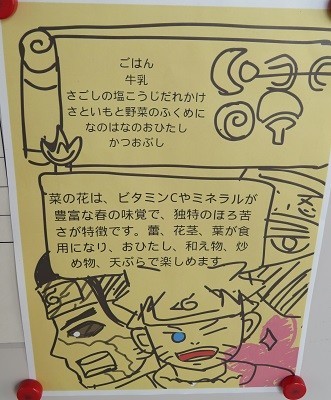 ごはん
牛乳
さごしの塩こうじだれかけ
さといもと野菜のふくめに
なのはなのおひたし
かつおぶし
菜の花は、ビタミンCやミネラルが
豊富な春の味覚で、独特のほろ苦
さが特徴です。蕾、花茎、葉が食
用になり、おひたし、和え物、炒
め物、天ぷらで楽しめます